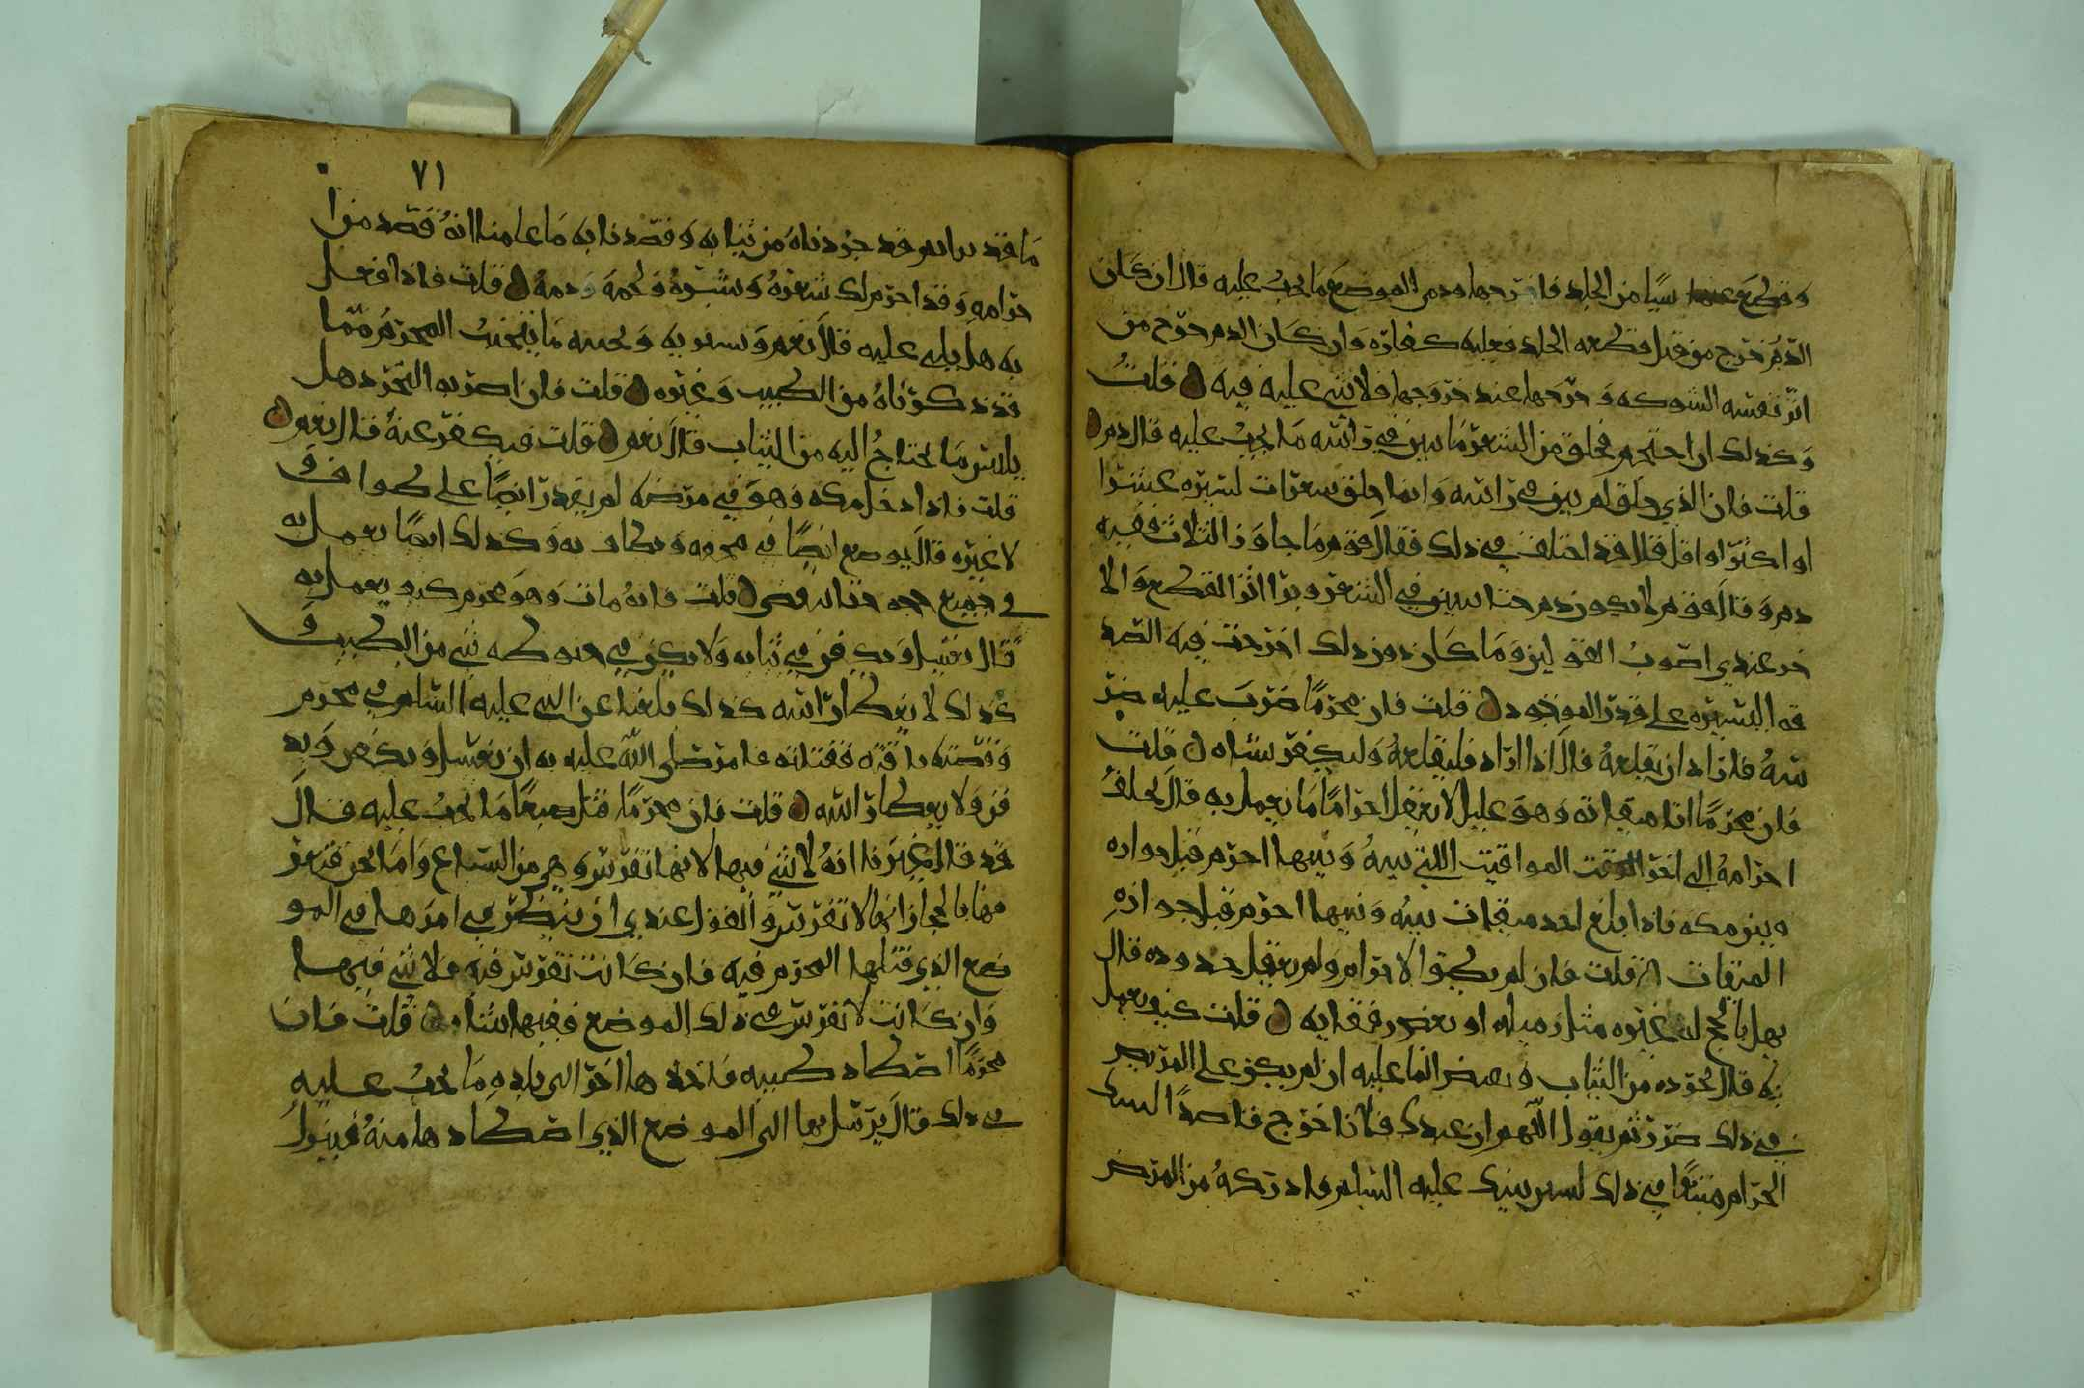 وقطع شيًا من الجلد فاخرجها ودمي الموضع ما يجب عليه قال ان كان
الدم خرج من قبل قطعه الجلد فعليه كفارة وان كان الدم خرج من
اثر نفشه الشوكه وخرجها عند خروجها فلا شي عليه فيه قلتُ
وكذلك ان احتجم فحلق من الشعر ما يبين في راسه ما يجب عليه قال دم
قلت فان الذي حلق لم يبن في راسه وانما حلق شعرات لسيره عشرا
او اكثر او اقل قال قد اختلف في ذلك فقال قوم ما جاوز الثلاث ففيه
دم وقال قوم لا يكون دم حتا يبين في الشعر ويرا اثر القطع والا
خر عندي اصوب القولين وما كان دون ذلك اخرجت فيه الصد
قه اليسيره على قدر الموخوذ قلت فان محرمًا ضرب عليه ضر
سهُ فاراد ان يقلعهُ قال اذا اراد فليقلعهُ وليكفر بشاه قلت
فان محرمًا اتا ميقاته وهو عليل لا يعقل احرامًا ما يعمل به قال يخلف
احرامهُ الى اخر المواقيت اللتي بينهُ وبينها احرم قبل جوازه
وبين مكه فاذا بلغ اخد ميقات بينه وبينها احرم قبل جوازهِ
الميقات قلت فان لم يطيق الاحرام ولم يعقل حدوده قال
يهل بالحج له غيره مثل زميله او بعض رفقايه قلت كيف يعمل
به قال يجرده من الثياب ويصب الما عليه ان لم يكن على المريض
في ذلك ضرر ثم يقول اللهم ان عبدك فلانا خرج قاصدًا لبيتك
الحرام متبعًا في ذلك لسنن نبيك عليه السلام فادركهُ من المرض
٧١
ما قد ترا وقد جردناه من ثيابه وقصدنا به ما علمنا انهُ قصد من
احرامه وقد احرم لك شعرهُ وبشرهُ ولحمه ودمهُ قلت فاذا فعل
به هل يلبي عليه قال نعم ويسير به ويجنبه ما يتجنب المحرم مما
قد ذكرناهُ من الطيب وغيره قلت فان اضر به التجرد هل
يلبس ما يحتاجُ اليه من الثياب قال نعم قلت فيكفر عنهُ قال نعم
قلت فاذا دخل مكه وهو في مرضه لم يقدر ايضًا على طواف و
لا غيره قال يوضع ايضًا في محمه ويطاف به وكذلك ايضًا يعمل به
في جميع حجه حتا ينقضي قلت فانهُ مات وهو محرم كيف يعمل به
قال يغسل ويكفن في ثيابه ولا يكن في حنوطه شي من الطيب و
كذلك لا يغطا راسه كذلك بلغنا عن النبي عليه السلم في محرم
وقصته ناقته فقتلته فامر صلى الله عليه به ان يغسل ويكفن ويد
فن ولا يغطا راسه قلت فان محرمًا قتل ضبعًا ما يجب عليه قال
قد قال غيرنا انهُ لا شي فيها لانها تفرس وهي من السباع واما نحن فنعر
فها بالحجاز انها لا تفرس والقول عندي ان ينظر في امرها في المو
ضع الذي قتلها المحرم فيه فان كانت تفرس فيه فلا شي فيها
وان كانت لا تفرس في ذلك الموضع ففيها شاه قلت فان
محرمًا اصطاد ظبيه فاخذها اخر الى بلده ما يجب عليه
في ذلك قال يرسل بها الى الموضع الذي اصطادها منهُ فينزلُ